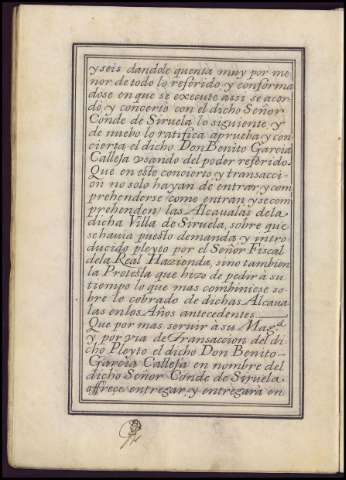 y seis dandole quenta muy por me
nor de todo lo referido y conforma
dose en que se execute assi se acor
do, y concerto con el dicho Señor
Conde de Siruela lo siguiente y
de nuebo lo ratifica aprueba y con
cierta el dicho Don Benito Garcia
Calleja usando del poder referido
Que en este concierto y transacci
on no solo hayan de entrar y com
prehenderse como entran y se com
prehenden las Alcaualas de la
dicha Villa de Siruela, sobre que
se hauia puesto demanda y intro
ducido pleyto por el Señor Fiscal
de la Real Hazienda, sino tambien
la Protesta que hizo de pedir a su
tiempo lo que mas combiniese so
bre lo cobrado de dichas Alcaua
las en los Años antecedentes
Que por mas seruir a su Mag.d
y por via de transaccion del di
cho Pleyto el dicho Don Benito
Garcia Calleja en nombre del
dicho Señor Conde de Siruela
offrece entregar y entregara en